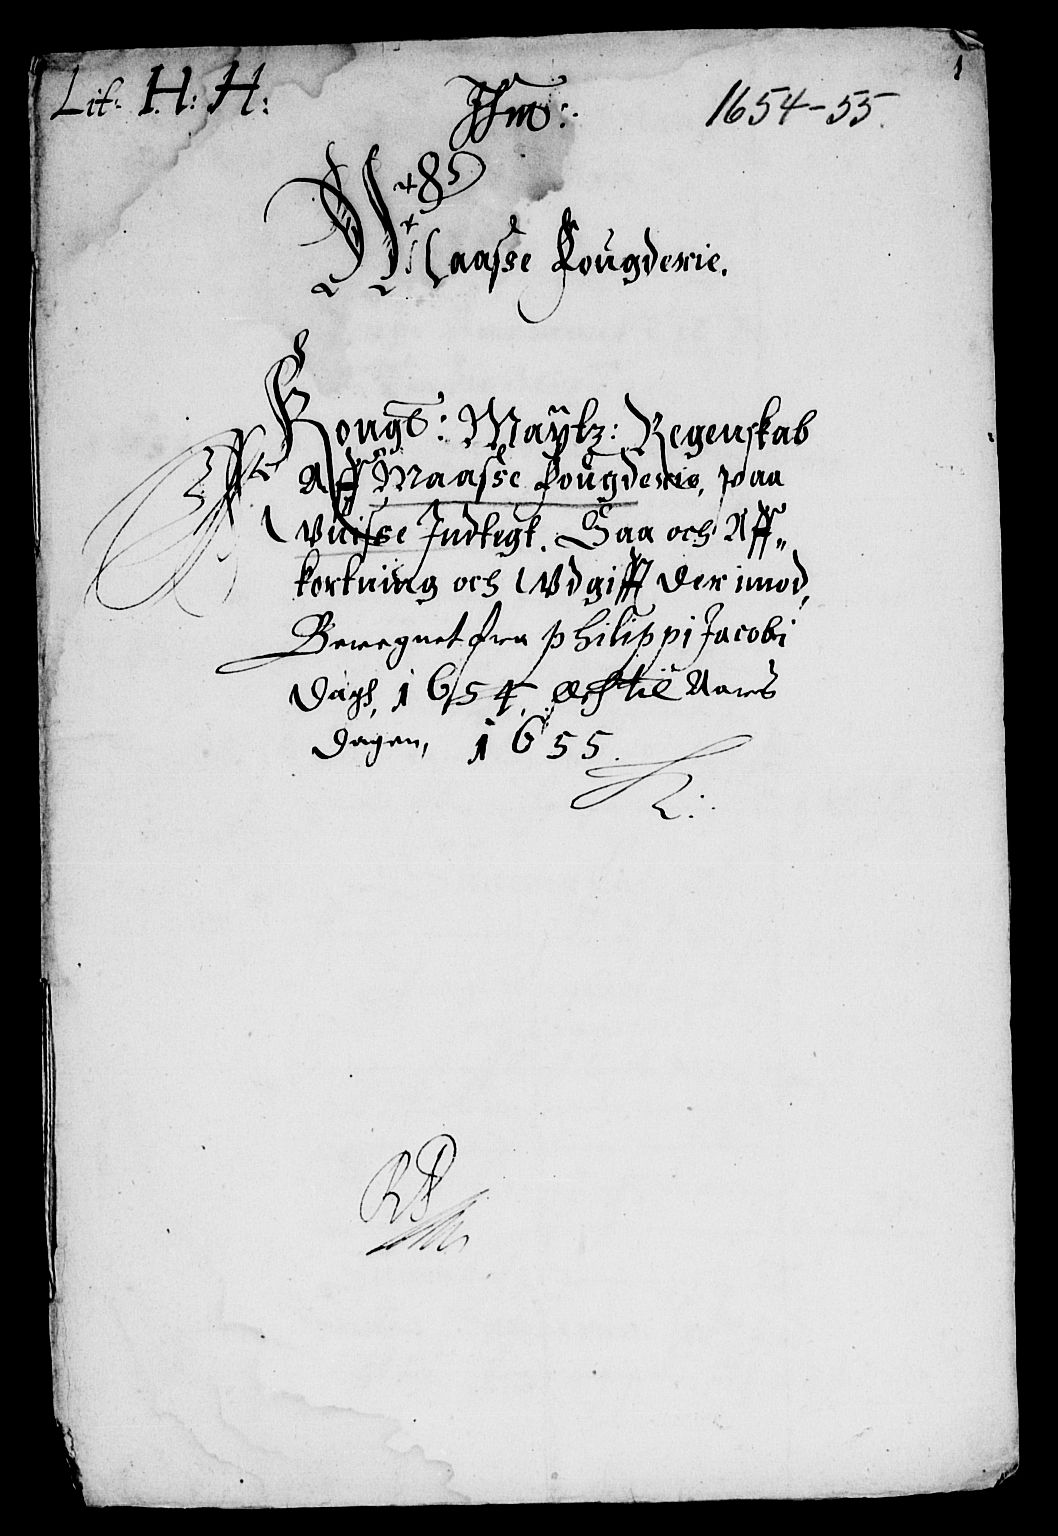 Lit. H: H:
1
1654-55.
Maasse Fougderie.
Kongl: Maÿtz: Regenskab
Aff Maasse Fougderie, paa
Vuisse Indtegt. Saa och Aff-
kortning och Udgifft der imod,
Beregnet fra Philippi Jacobi
Dagh, 1654, och til Aars
Dagen, 1655.